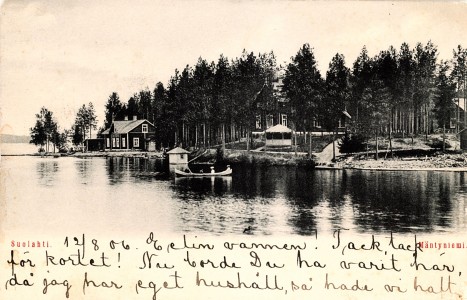 Suolahti. 12/8 06. Elin vännen! Tack, tack Mäntyniemi.
för kortet! Nu borde Du ha varit här,
då jag har eget hushåll, så hade vi haft